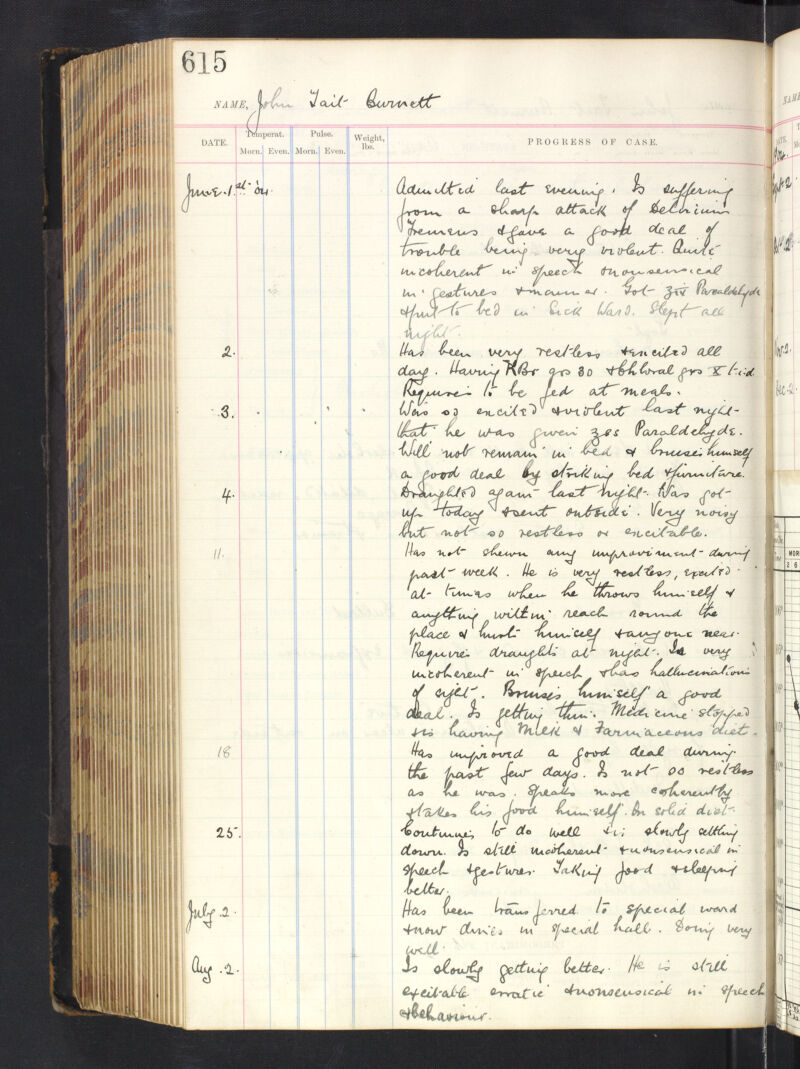 615
NAME, John Tait Burnett
DATE. Temperat. Pulse. Weight, lbs. PROGRESS OF CASE.
Morn. Even. Morn. Even.
June 1st '04. Admitted last evening. Is suffering
from a sharp attack of Delirium
Tremens & gave a good deal of
trouble being very violent. Quite
incoherent in speech & nonsensical
in gestures & manner. Got Paraldehyde
& put to bed in Sick Ward. Slept all
night.
2. Has been very restless & excited all
day. Having KBr grs 30 & Chloral grs X t.i.d
Requires to be fed at meals.
3. Was so excited & violent last night
that he was given Paraldehyde.
Will not remain in bed & bruises himself
a good deal by striking bed & furniture.
4. Draughted again last night. Was got
up today & sent outside. Very noisy
but not so restless or excitable.
11. Has not shewn any improvement during
past week. He is very restless, excited
at times when he throws himself &
anything within reach round the
place & hurts himself & anyone near.
Requires draughts at night. Is very
incoherent in speech & has hallucinations
of sight. Bruises himself a good
deal. Is getting thin. Medicine stopped
& is having Milk & Farinaceous diet.
18 Has improved a good deal during
the past few days. Is not so restless
as he was. Speaks more coherently
& takes his food himself. On solid diet.
25. Continues to do well & is slowly settling
down. Is still incoherent & nonsensical in
speech & gestures. Taking food & sleeping
better.
July 2. Has been transferred to special ward
& now dines in special hall. Doing very
well.
Aug. 2. Is slowly getting better. He is still
excitable erratic & nonsensical in speech
& behaviour.